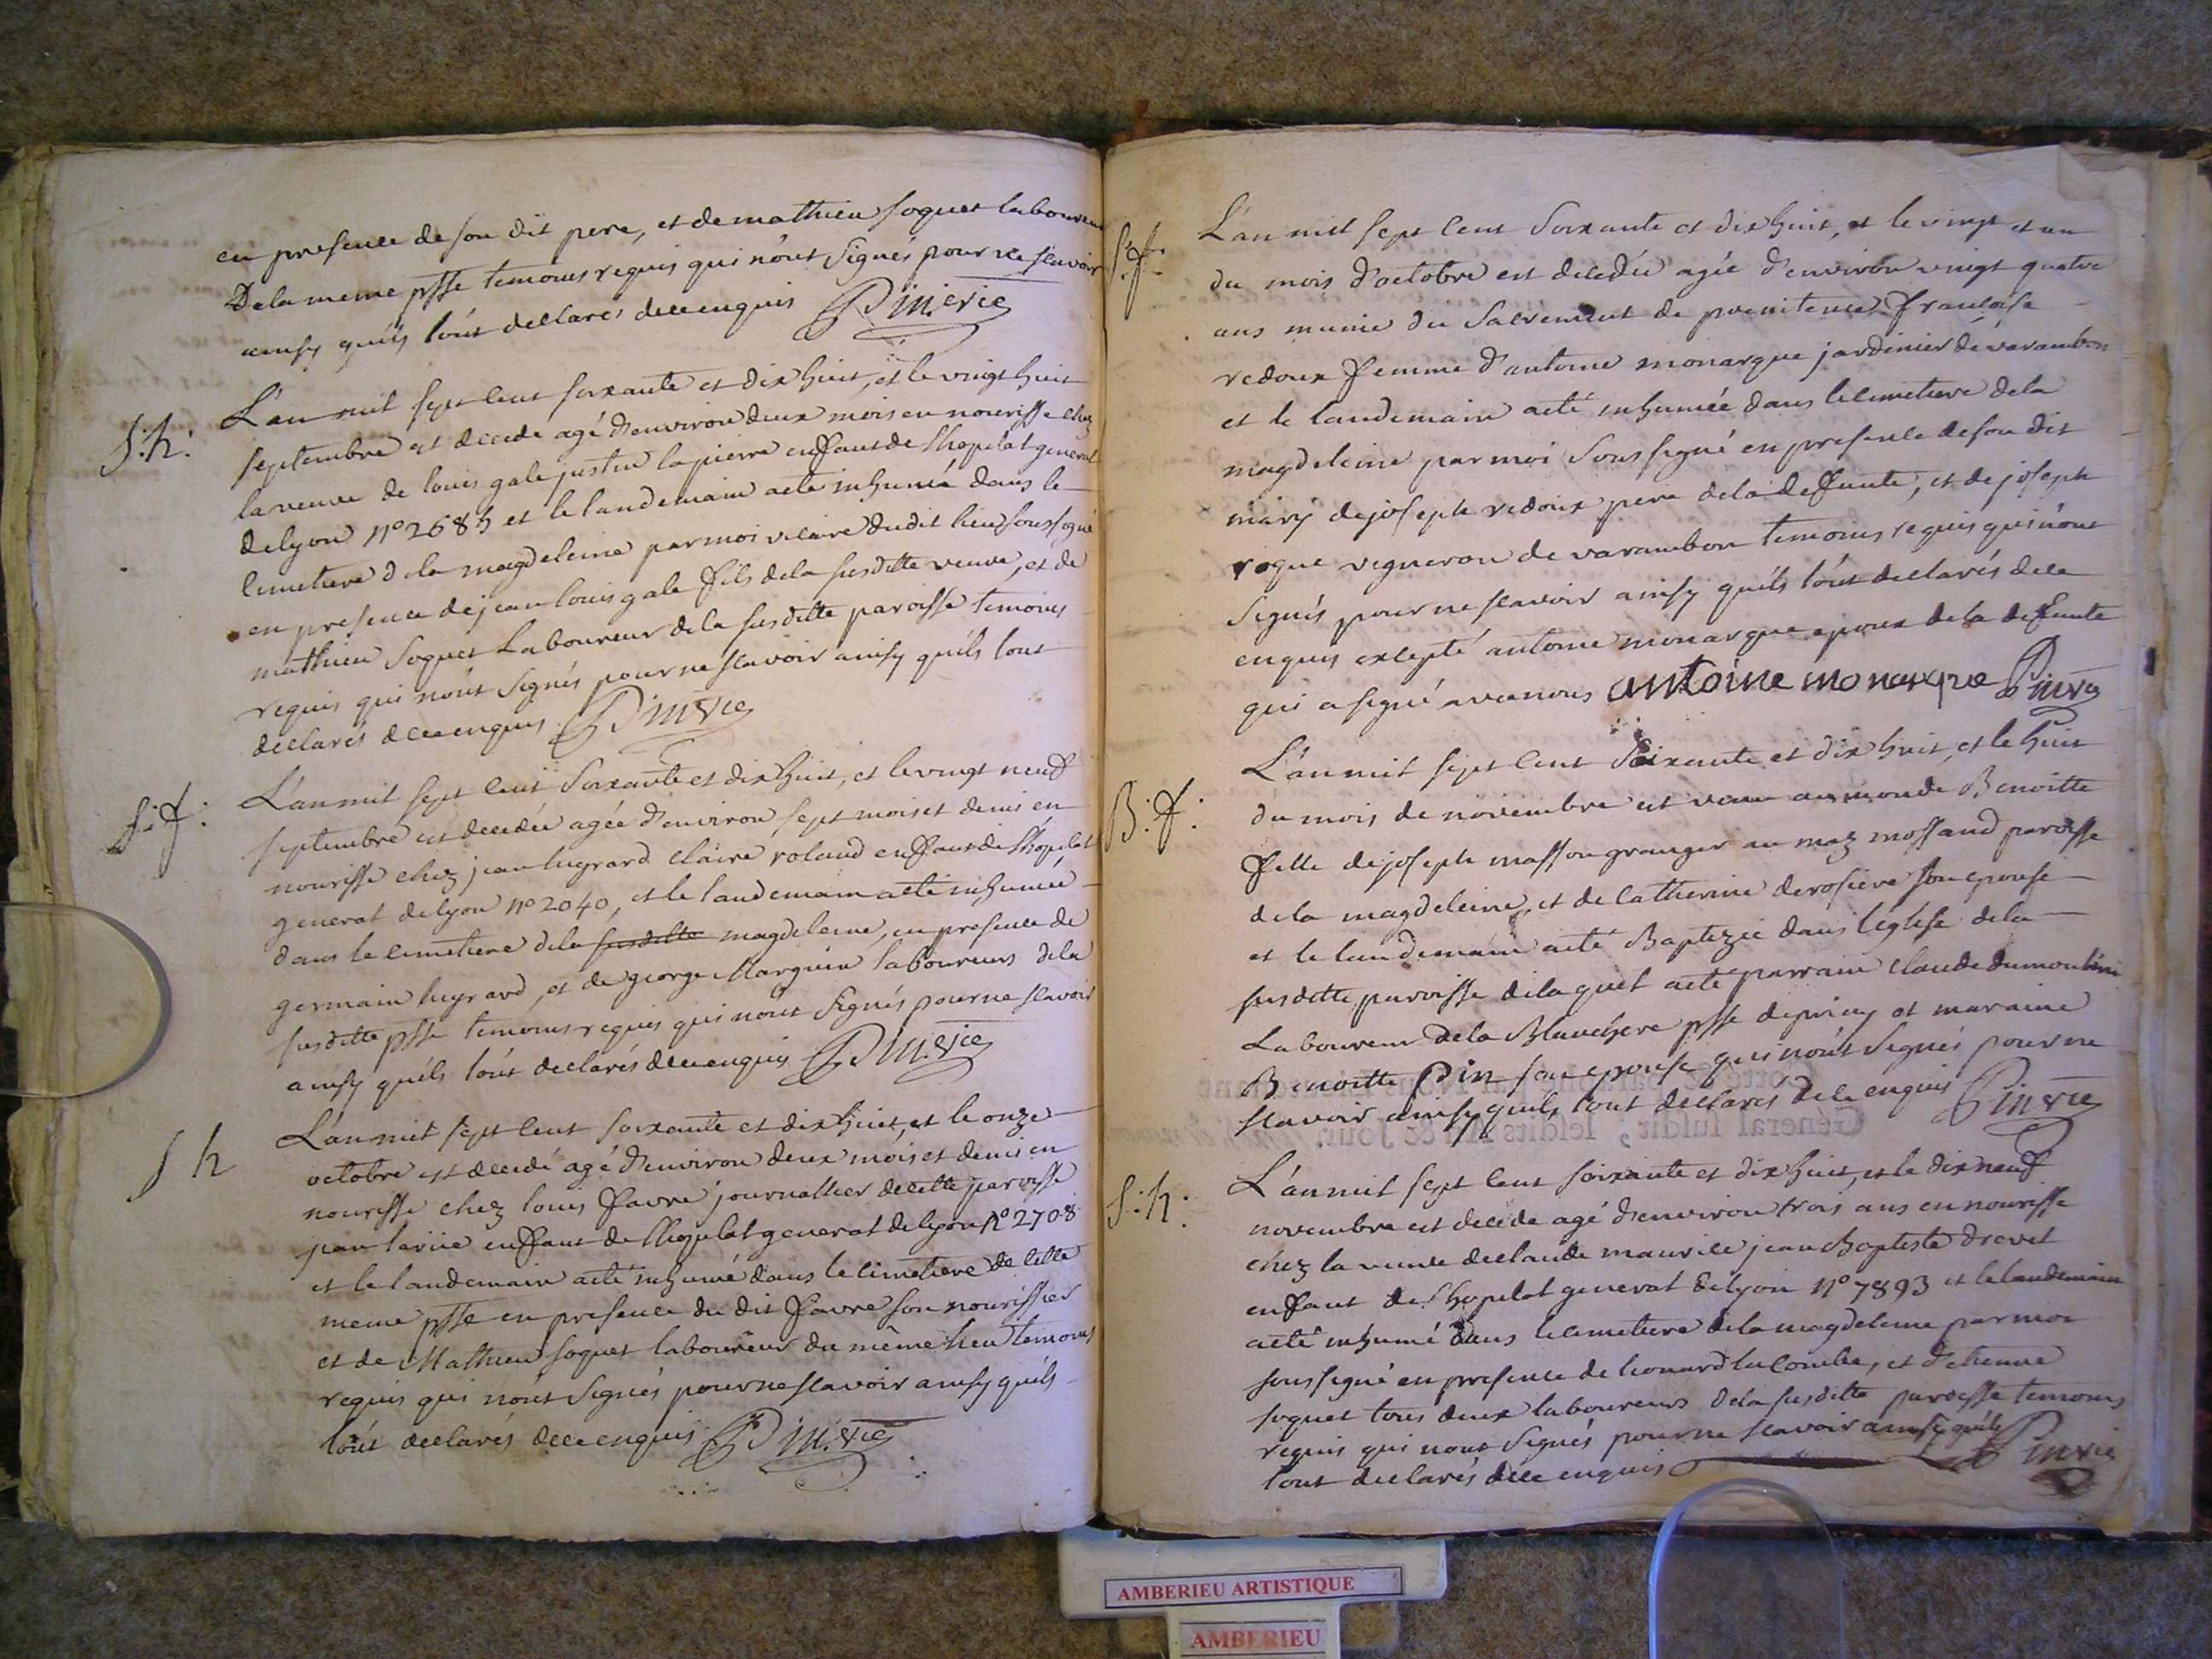 en presence de son dit pere, et de mathieu soquet laboureur
De la meme psse temoins requis qui n'ont signés pour ne scavoir
ainsy qu'ils l'ont declarés de ce enquis Pin vic
S:h:
L'an mil sept cent soixante et dix huit, et le vingt huit
septembre est decede agé d'environ deux mois en nourisse chez
la veuve de louis gale justin lapierre enffant de l'hopital general
de lyon n° 2685 et le landemain a eté inhumé dans le
cimetiere d la magdeleine par moi vicaire du dit lieu soussigné
en presence de jean louis gale fils de la susditte veuve, et de
mathieu soquet Laboureur de la susditte paroisse temoins
requis qui n'ont signés pour ne scavoir ainsy qu'ils l'ont
declarés de ce enquis Pin vic
S:f:
L'an mil sept cent soixante et dix huit, et le vingt neuf
septembre est decedée agée d'environ sept mois et demi en
nourisse chez jean hugrard claire roland enffant de l'hopital
general de lyon n° 2040, et le landemain a eté inhumée
dans le cimetiere de la susditte magdeleine, en presence de
germain hugrard, et de george Marguin laboureurs de la
susditte psse temoins requis qui n'ont signés pour ne scavoir
ainsy qu'ils l'ont declarés de ce enquis Pin vic
S h
L'an mil sept cent soixante et dix huit, et le onze
octobre est decedé agé d'environ deux mois et demi en
nourisse chez louis favre journallier de cette paroisse
jean enffant de l'hopital general de lyon n° 2708
et le landemain a eté inhumé dans le cimetiere de cette
meme psse en presence du dit favre son nourissier
et de Mathieu soquet laboureur du même lieu temoins
requis qui n'ont signés pour ne scavoir ainsy qu'ils
l'ont declarés de ce enquis Pin vic
S:f:
L'an mil sept cent soixante et dix huit, et le vingt et un
du mois d'octobre est decedée agée d'environ vingt quatre
ans munie du sacrement de penitence françoise
redoux femme d'antoine monarque jardinier de varambon
et le landemain a eté inhumée dans le cimetiere de la
magdeleine par moi soussigné en presence de son dit
mary de joseph redoux pere de la deffunte, et de joseph
roque vigneron de varambon temoins requis qui n'ont
signés pour ne scavoir ainsy qu'ils l'ont declarés de ce
enquis excepté antoine monarque epoux de la defunte
qui a signé avec nous antoine monarque Pin vic
B:f:
L'an mil sept cent soixante et dix huit, et le huit
du mois de novembre est venu au monde Benoitte
fille de joseph masson granger au maz mossand paroisse
de la magdeleine, et de catherine derosiere son epouse
et le landemain a eté Baptizée dans l'eglise de la
susditte paroisse de laquel a eté parrain claude dumoulin
Laboureur de la Blanchere psse de priay et maraine
Benoitte Pin son epouse qui n'ont signés pour ne
scavoir ainsy qu'ils l'ont declarés de ce enquis Pin vic
S:h:
L'an mil sept cent soixante et dix huit, et le dix neuf
novembre est decede agé d'environ trois ans en nourisse
chez la veuve de claude maurice jean Baptiste drevet
enffant de l'hopital general de lyon n° 7893 et le landemain
a eté inhumé dans le cimetiere de la magdeleine par moi
soussigné en presence de leonard lacombe, et d'etienne
soquet tous deux laboureurs de la susditte paroisse temoins
requis qui n'ont signés pour ne scavoir ainsy qu'ils
l'ont declarés de ce enquis Pin vic
AMBERIEU ARTISTIQUE
AMBERIEU